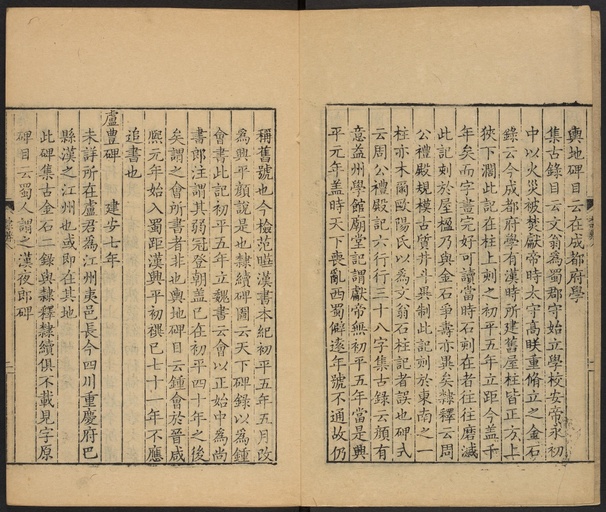 輿地碑目云在成都府學
集古錄目云文翁為蜀郡守始立學校安帝永初
中以火災被焚獻帝時太守高眹重脩立之金石
錄云今成都府學有漢時所建舊屋柱皆正方上
狹下濶此記在柱上刻之初平五年立距今蓋千
年矣而字畫完好可讀當時石刻在者往往磨滅
此記刻於屋楹乃與金石爭壽亦異矣隸釋云周
公禮殿規模古質井斗異制此記刻於東南之一
柱亦木爾歐陽氏以為文翁石柱記者誤也碑式
云周公禮殿記六行行三十八字集古錄云顏有
意益州學館廟堂記謂獻帝無初平五年當是興
平元年蓋時天下喪亂西蜀僻遠年號不通故仍
稱舊號也今檢范蔚漢書本紀初平五年五月改
為興平顏說是也隸續碑圖云天下碑錄以為鍾
會書此記初平五年立魏書云會以正始中為尚
書郎注謂其弱冠登朝蓋已在初平四十年之後
矣謂之會所書者非也輿地碑目云鍾會於晉咸
熈元年始入蜀距漢興平初禩已七十一年不應
追書也
盧豐碑 建安七年
未詳所在盧君為江州夷邑長今四川重慶府巴
縣漢之江州也或即在其地
此碑集古金石二錄與隸釋隸續俱不載見字原
碑目云蜀人謂之漢夜郎碑